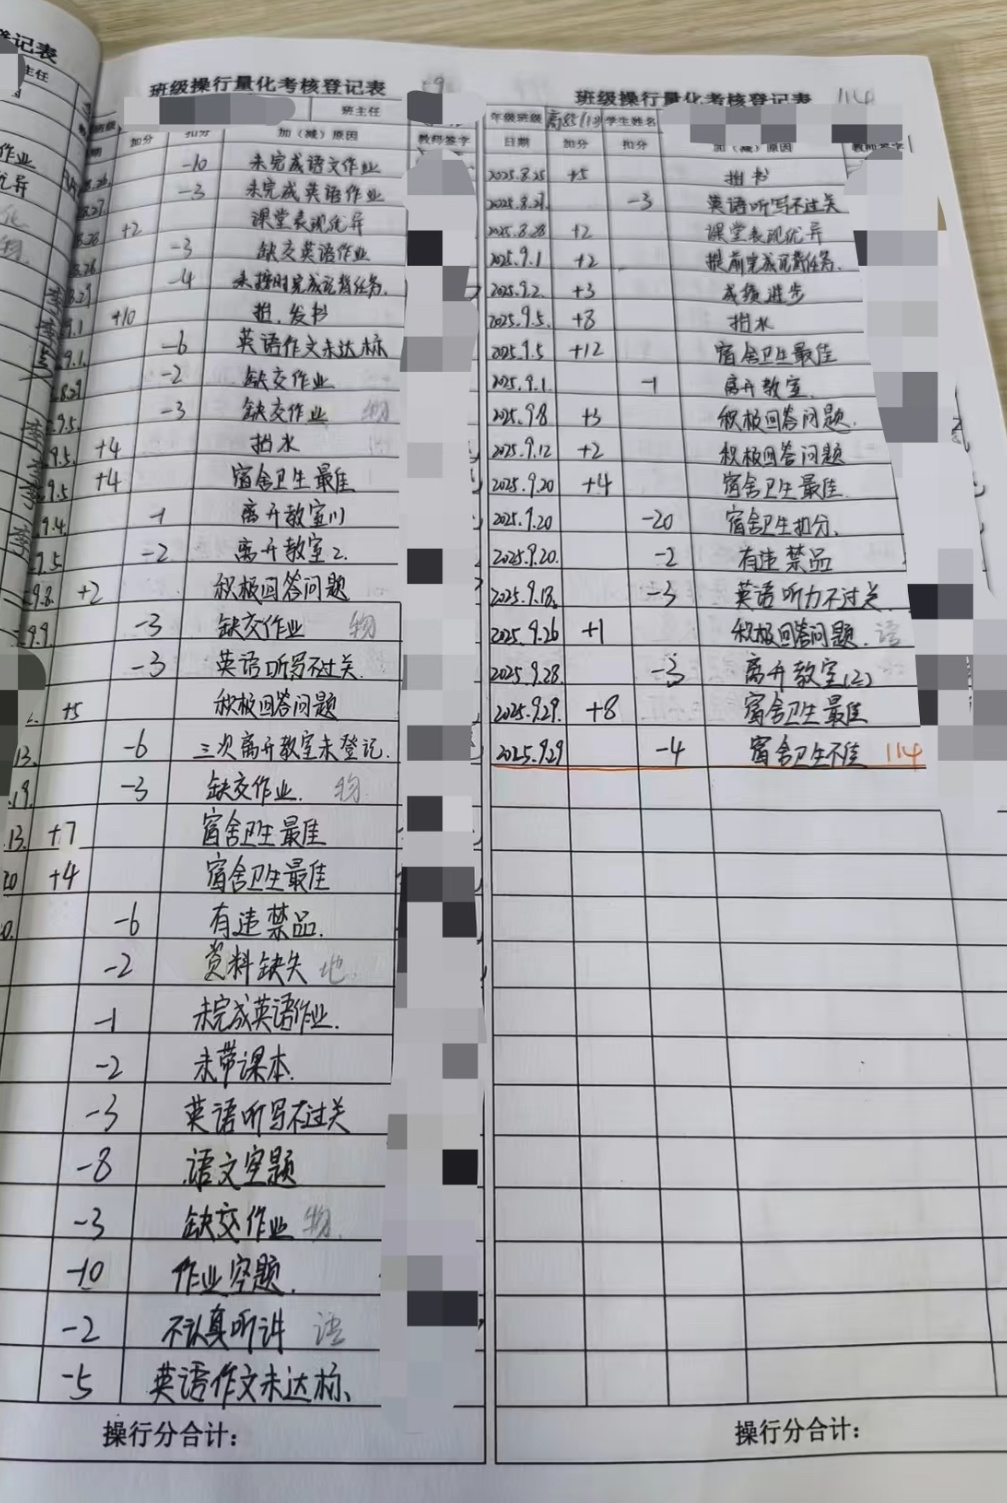 登记表
主任
作业
优异
班级操行量化考核登记表
班主任
加分 扣分 加（减）原因 教师签字
-10 未完成语文作业
-3 未完成英语作业
+2 课堂表现优异
-3 缺交英语作业
-4 未按时完成记背任务
+10 担、发书
-6 英语作文未达标
-2 缺交作业
-3 缺交作业 物
9.5 +4 担水
9.5 +4 宿舍卫生最佳
9.4 -1 离开教室
9.5 -2 离开教室2.
9.8. +2 积极回答问题
9.9. -3 缺交作业 物
-3 英语听写不过关.
+5 积极回答问题
13. -6 三次离开教室未登记.
.19. -3 缺交作业. 物
13. +7 宿舍卫生最佳
20 +4 宿舍卫生最佳
-6 有违禁品.
-2 资料缺失 地
-1 未完成英语作业.
-2 未带课本.
-3 英语听写不过关
-8 语文空题
-3 缺交作业 物.
-10 作业空题.
-2 不认真听讲 语
-5 英语作文未达标、
操行分合计：
班级操行量化考核登记表 114
年级班级 学生姓名
日期 加分 扣分 加（减）原因 教师签字
2025.8.25 +5 担书
2025.8.27. -3 英语听写不过关
2025.8.28 +2 课堂表现优异
2025.9.1 +2 提前完成记背任务.
2025.9.2. +3 成绩进步
2025.9.5. +8 担水
2025.9.5 +12 宿舍卫生最佳
2025.9.1. -1 离开教室.
2025.9.8. +3 积极回答问题.
2025.9.12 +2 积极回答问题
2025.9.20 +4 宿舍卫生最佳.
2025.9.20 -20 宿舍卫生扣分.
2025.9.20. -2 有违禁品
2025.9.18. -3 英语听力不过关.
2025.9.26 +1 积极回答问题. 语
2025.9.28. -3 离开教室(2)
2025.9.29. +8 宿舍卫生最佳
2025.9.29 -4 宿舍卫生不佳 114
操行分合计：